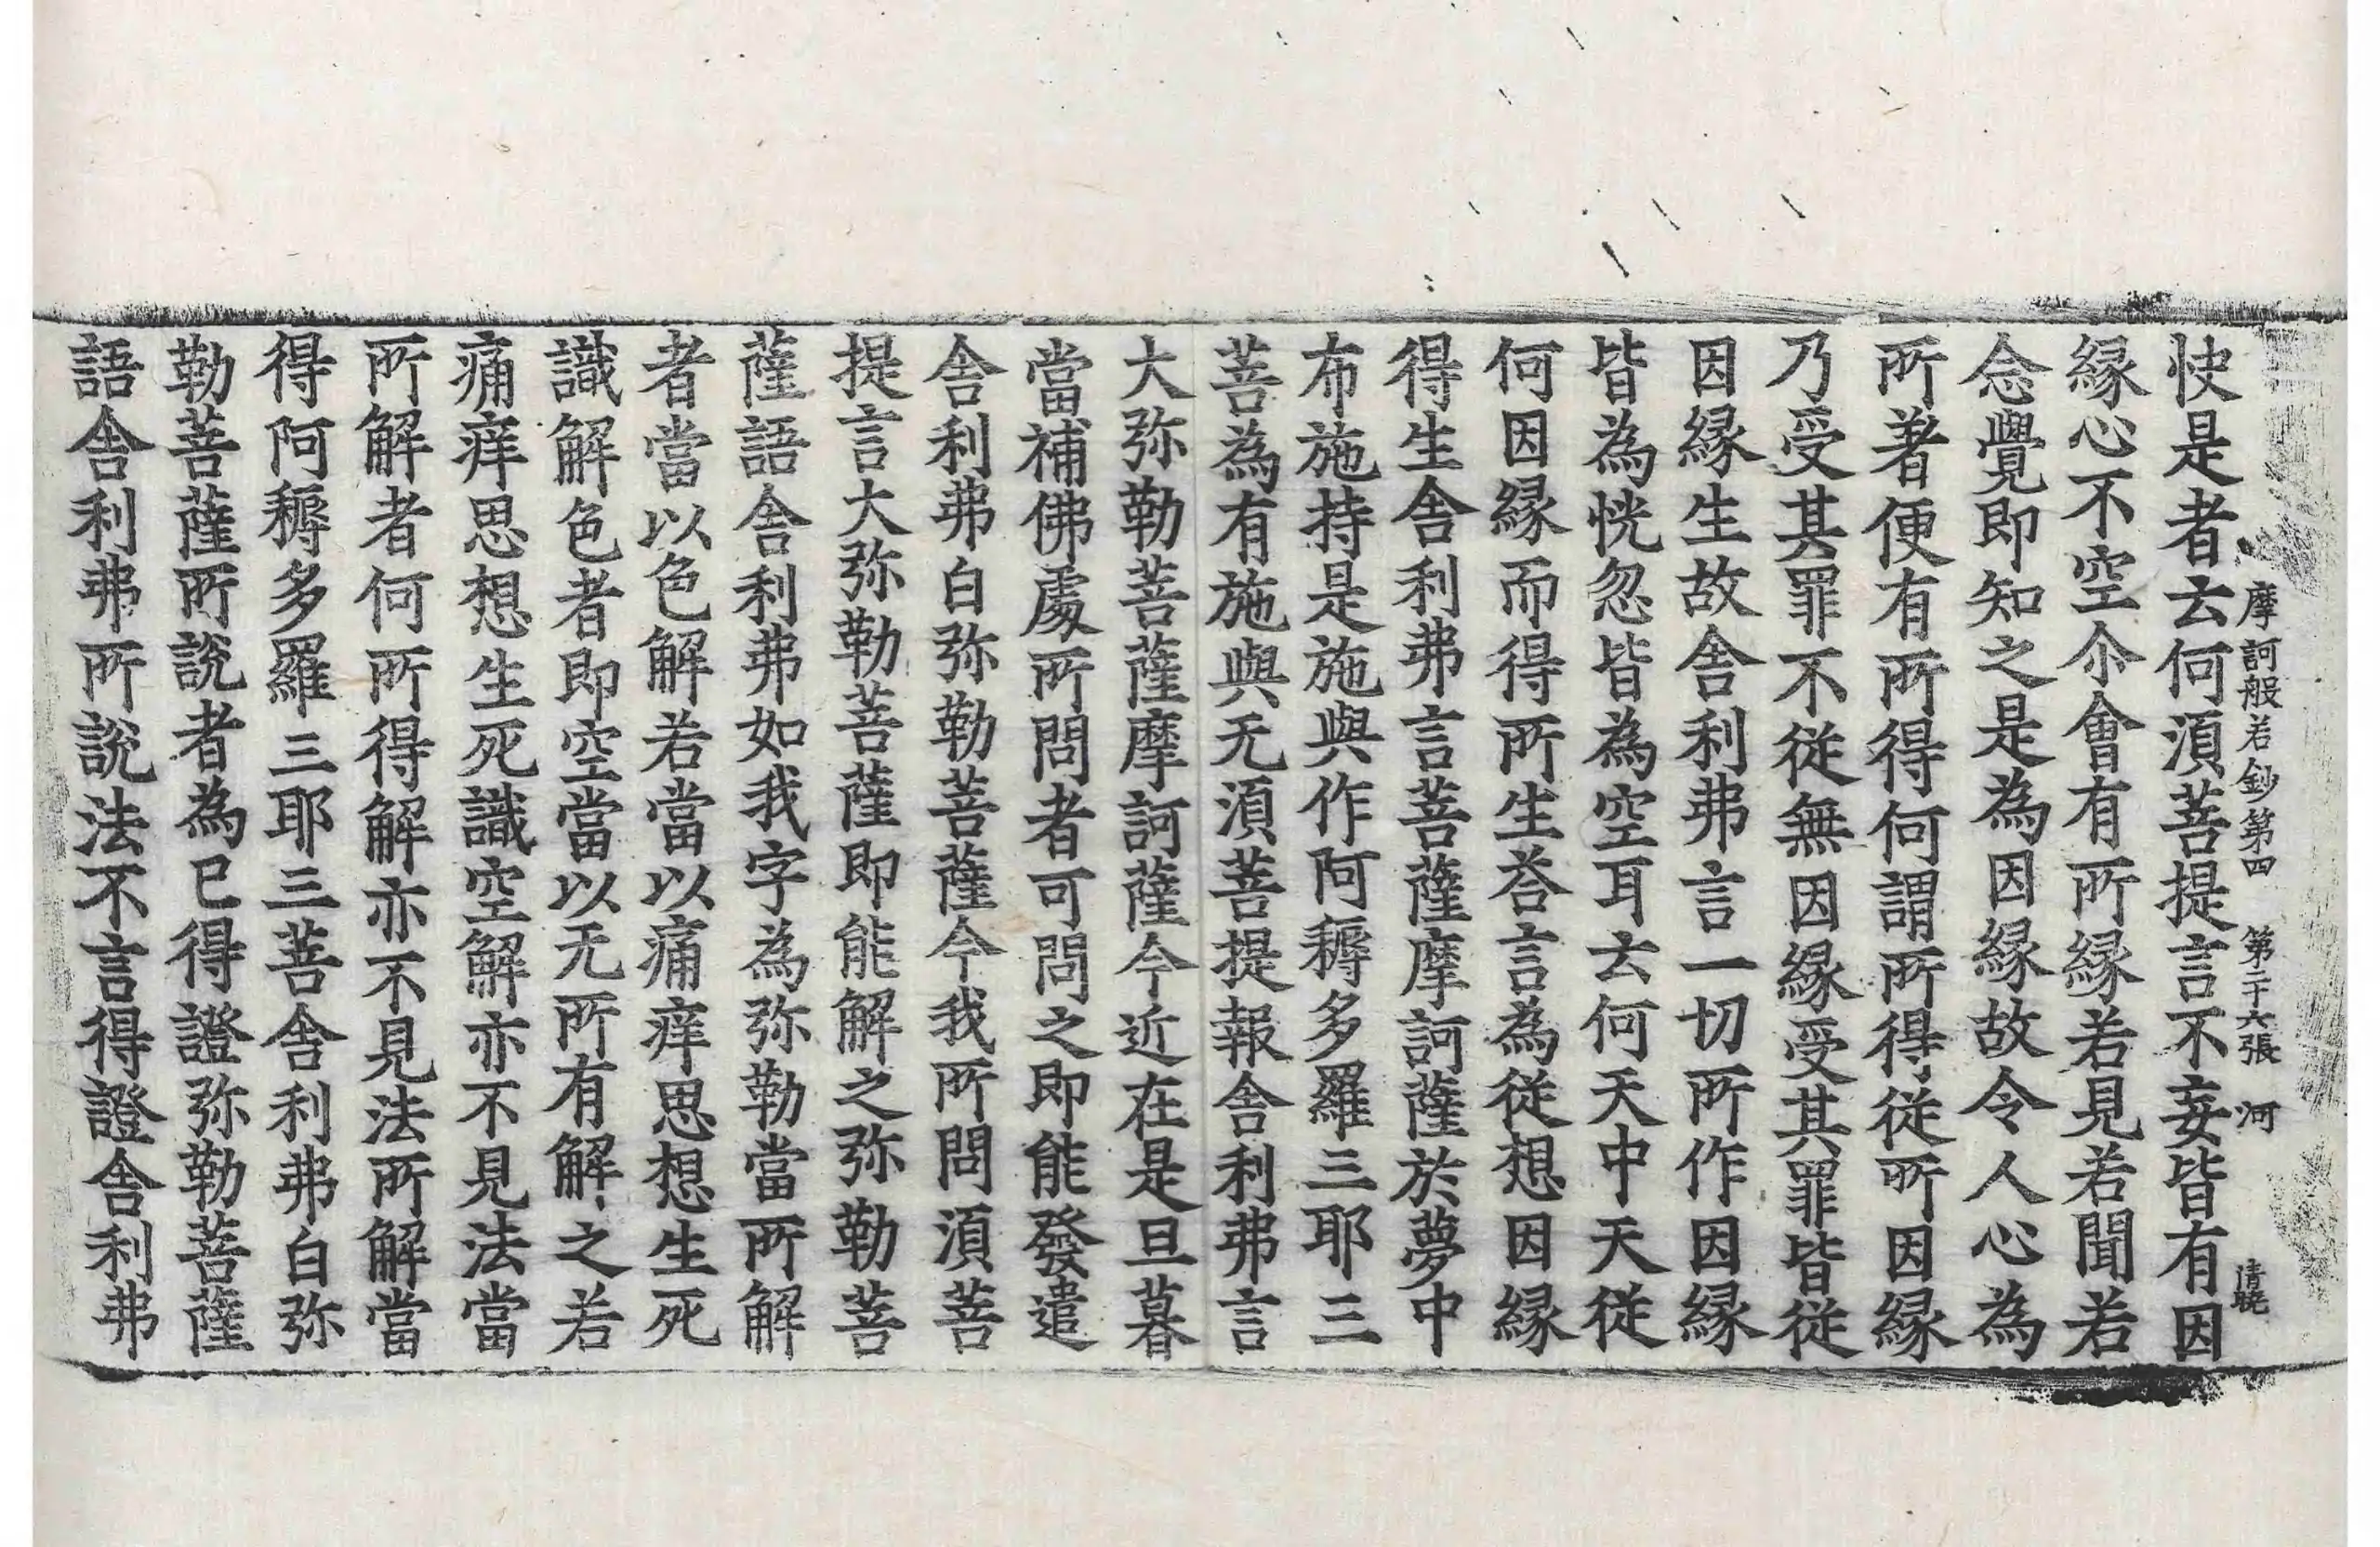 摩訶般若鈔第四　第二十六張　河　清曉
快是者去何湏菩提言不妄皆有因
縁心不空尒會有所縁若見若聞若
念覺即知之是為因縁故令人心為
所著便有所得何謂所得從所因縁
乃受其罪不從無因縁受其罪皆從
因縁生故舎利弗言一切所作因縁
皆為恍忽皆為空耳去何天中天從
何因縁而得所生荅言為從想因縁
得生舎利弗言菩薩摩訶薩於夢中
布施持是施與作阿耨多羅三耶三
菩為有施與无湏菩提報舎利弗言
大弥勒菩薩摩訶薩今近在是旦暮
當補佛處所問者可問之即能發遣
舎利弗白弥勒菩薩今我所問湏菩
提言大弥勒菩薩即能解之弥勒菩
薩語舎利弗如我字為弥勒當所解
者當以色解若當以痛痒思想生死
識解色者即空當以无所有解之若
痛痒思想生死識空解亦不見法當
所解者何所得解亦不見法所解當
得阿耨多羅三耶三菩舎利弗白弥
勒菩薩所說者為已得證弥勒菩薩
語舎利弗所說法不言得證舎利弗